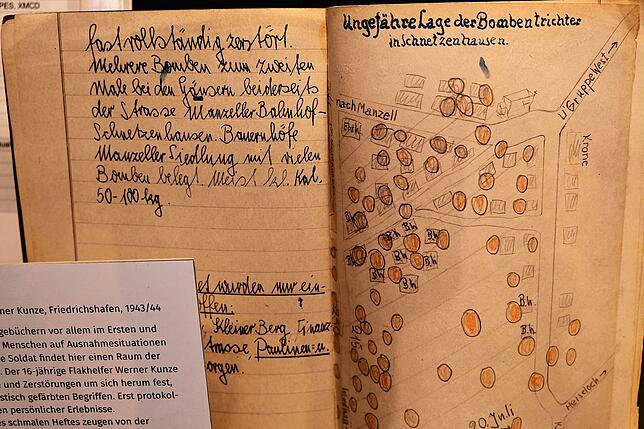 PES, XMCD
fast vollständig zerstört.
Mehrere Bomben zum zweiten
Male bei den Häusern beiderseits
der Strasse Manzeller Bahnhof-
Schnetzenhausen. Bauernhöfe
Manzeller Siedlung mit vielen
Bomben belegt. Meist kl. Kal.
50-100 kg.
et wurden nur ein-
offen:
Kleiner Berg,
trasse, Paulinen-u.
orgen.
ner Kunze, Friedrichshafen, 1943/44
gebüchern vor allem im Ersten und
Menschen auf Ausnahmesituationen
e Soldat findet hier einen Raum der
. Der 16-jährige Flakhelfer Werner Kunze
e und Zerstörungen um sich herum fest,
stisch gefärbten Begriffen. Erst protokol-
en persönlicher Erlebnisse.
s schmalen Heftes zeugen von der
Ungefähre Lage der Bombentrichter
in Schnetzenhausen.
U'Gruppe West→
nach Manzell
Krone
B.h.
B.h.
B.h.
B.h.
B.h.
B.h.
B.h.
B.h.
B.h.
Heiseloch→
20. Juli